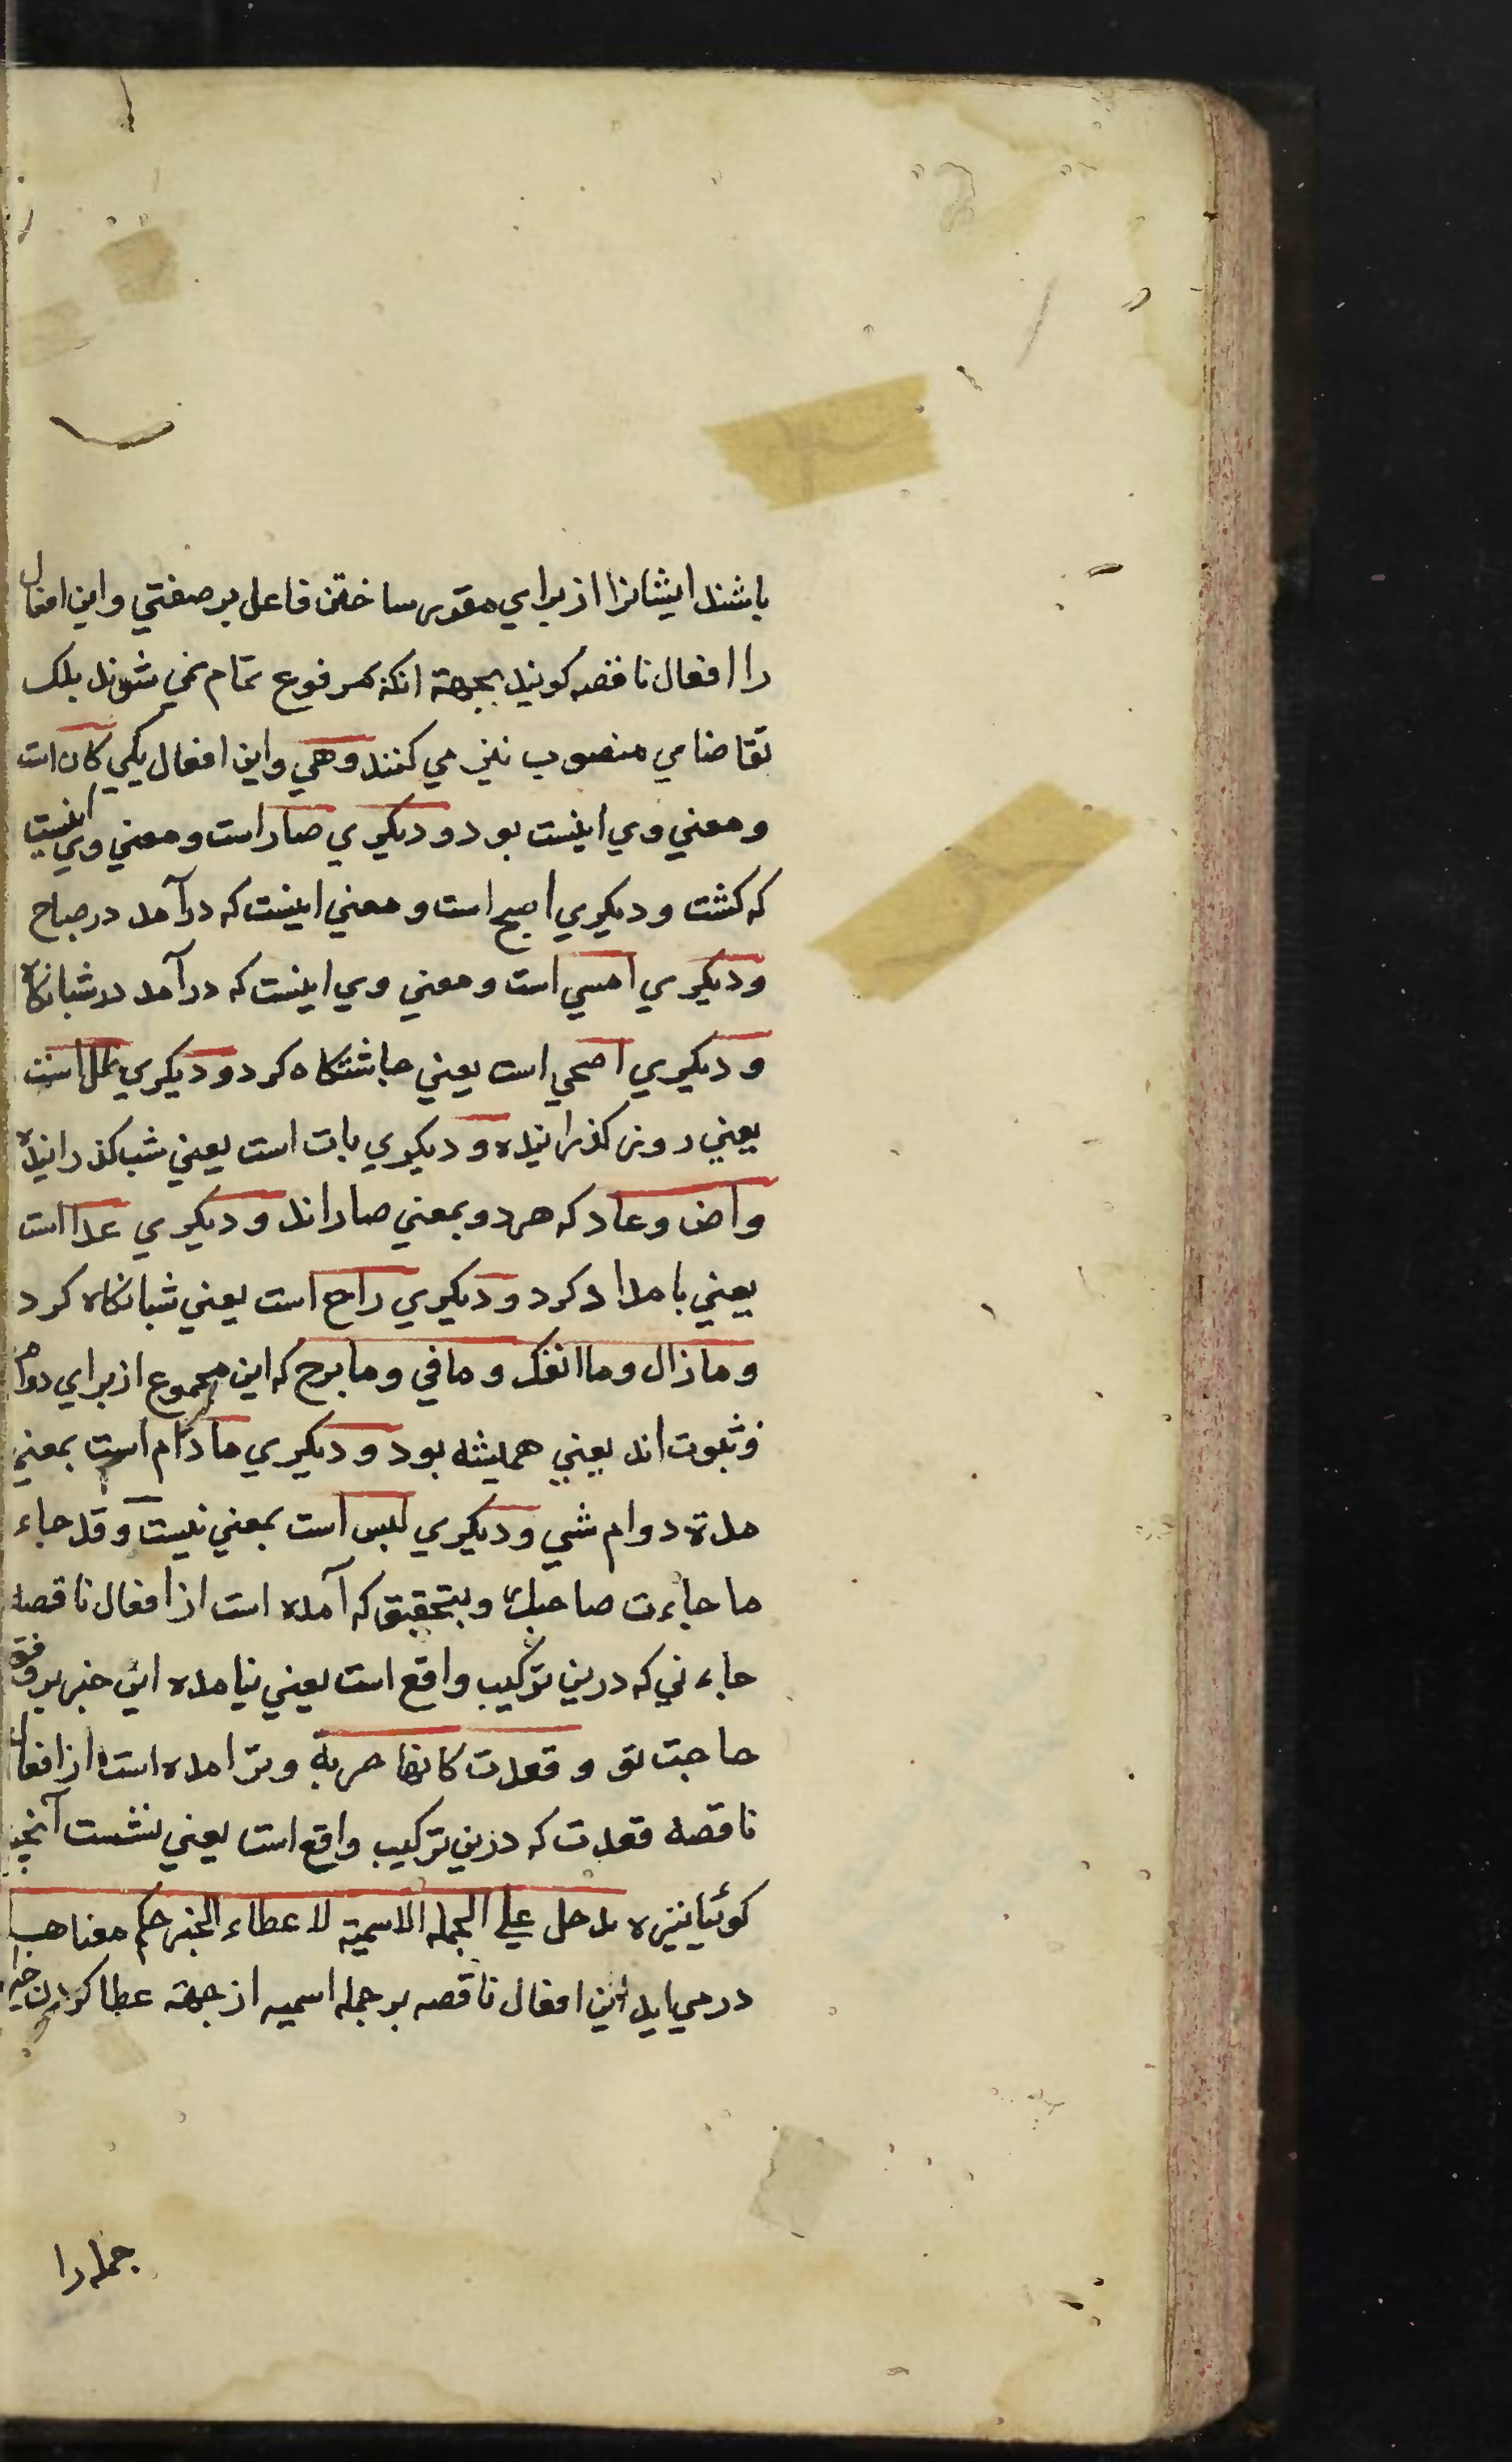 باشند ایشانرا از براي مقرر ساختن فاعل بر صفتي واین افعال
را افعال ناقصه کویند بجهة انکه بمرفوع تمام نمي شوند بلک
تقاضا مي منصوب نیز مي کنند وهي واین افعال یکي کان است
ومعني وي اینست بود و دیکري صار است ومعني وي اینست
که کشت و دیکري اصبح است و معني اینست که درآمد در صباح
ودیکري امسي است ومعني وي اینست که درآمد در شبانکاه
و دیکري اضحي است یعني جاشتکاه کرد و دیکري ظل است
یعني روز کذرانیده و دیکري بات است یعني شب کذرانیده
واض وعاد که هردو بمعني صار اند و دیکري غدا است
یعني بامداد کرد و دیکري راح است یعني شبانکاه کرد
ومازال وما انفک و مافتي ومابرح که این مجموع از براي دوام
وثبوت اند یعني همیشه بود و دیکري مادام است بمعني
مدة دوام شي و دیکري لیس است بمعني نیست وقد جاء
ما جاءت صاحبک وبتحقیق که آمده است از افعال ناقصه
جاء ني که درین ترکیب واقع است یعني نیامده این خبر بر وفق
حاجت تو و قعدت کانها حربة وبرامده است از افعال
ناقصه قعدت که درین ترکیب واقع است یعني نشست آنچنان
کوئیا نیزه تدخل علي الجملة الاسمیة لاعطاء الخبر حکم معناها
درمي اید این افعال ناقصه بر جمله اسمیه از جهة عطا کردن خبر
جمله را